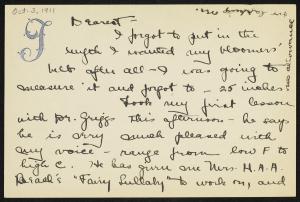 Oct. 3, 1911
J
Dearest -
I forgot to put in the
length I wanted my bloomers'
belt after all - I was going to
measure it and forgot to - 25 inches
Took my first lesson
with Dr. Griggs this afternoon - he says
he is very much pleased with
my voice - range from low F to
high C. He has given me Mrs. H. A. A.
Beach's "Fairy Lullaby" to work on, and